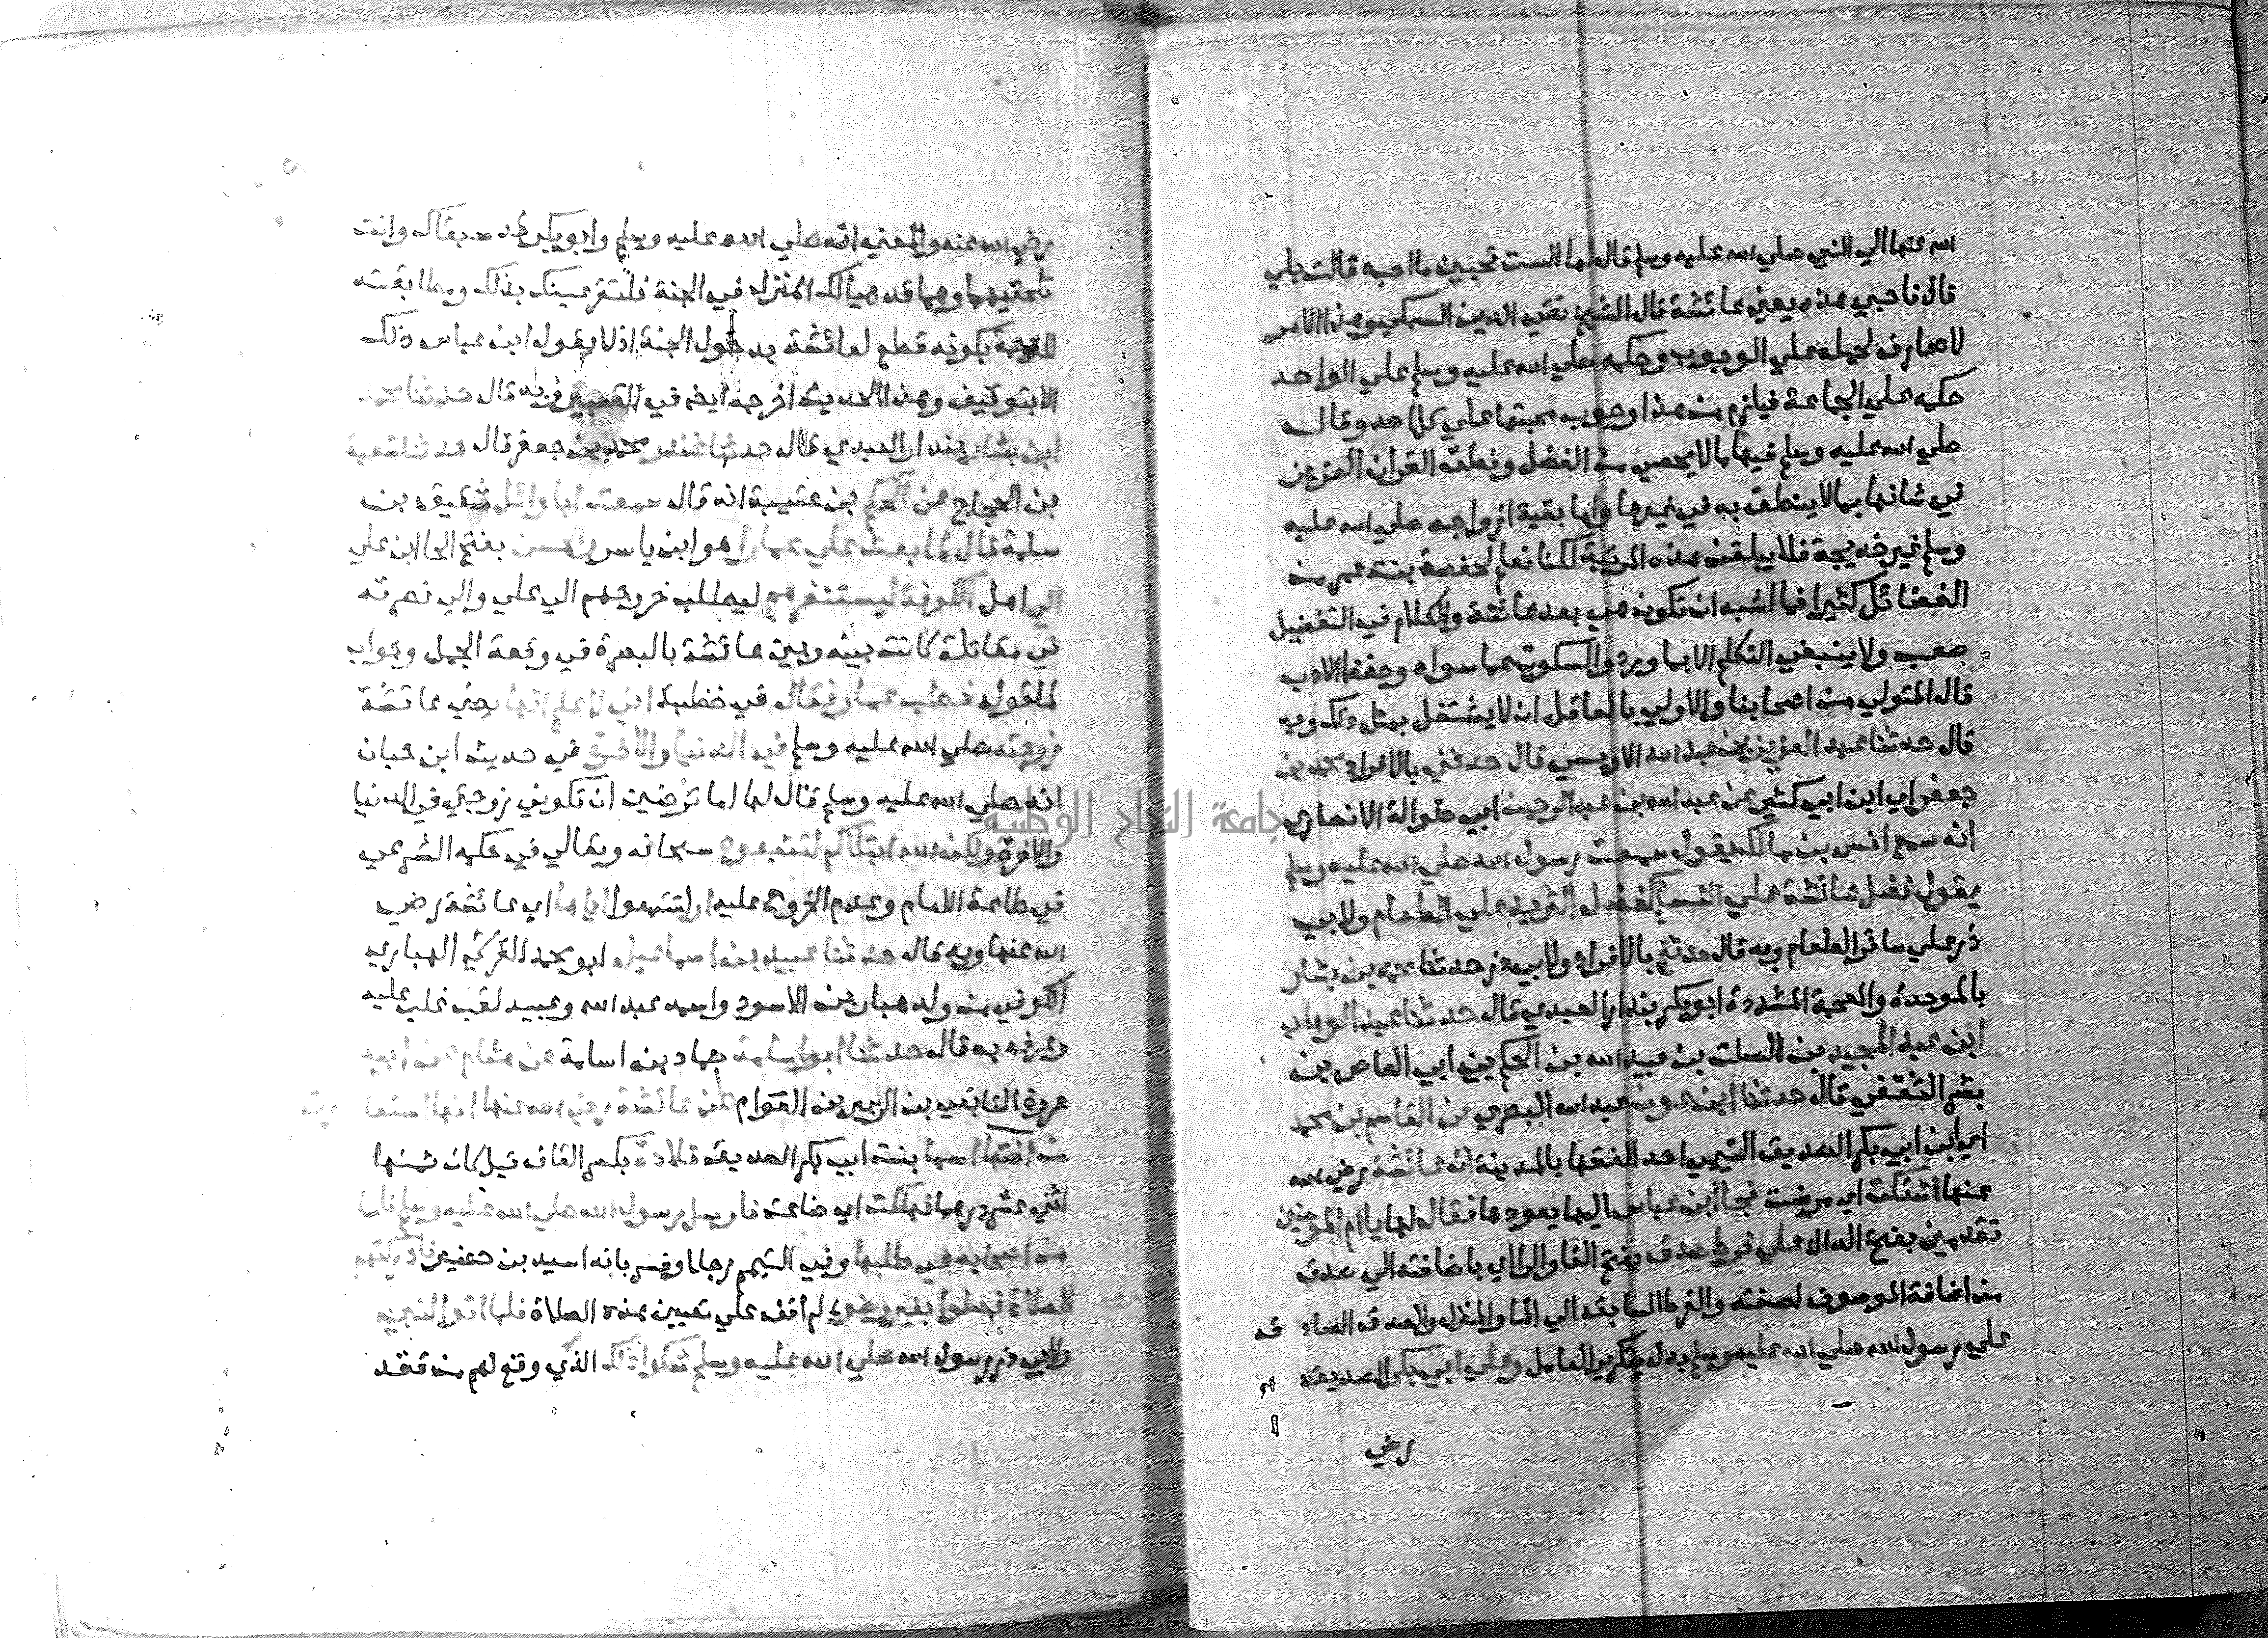 الله عنها الي النبي صلي الله عليه وسلم قال لها الست تحبين ما احبه قالت بلي
قال فاحبي هذه يعني عائشة قال الشيخ تقي الدين السبكي وهذا الامر
لا صارف لحمله علي الوجوب وحكمه صلي الله عليه وسلم علي الواحد
حكمه علي الجماعة فيلزم من هذا وجوب محبتها علي كل احد وقال
صلي الله عليه وسلم فيها ما لا يحصي من الفضل ونطق القران العزيز
في شانها بما لا ينطق به في غيرها واما بقية ازواجه صلي الله عليه
وسلم غير خديجة فلا يبلغن هذه المرتبة لكنا نعلم لحفصة بنت عمر من
الفضائل كثيرا فما اشبه ان تكون هي بعد عائشة والكلام في التفضيل
صعب ولا ينبغي التكلم الا بما ورد والسكوت عما سواه وحفظ الادب
قال المتولي من اصحابنا والاولي بالعاقل ان لا يشتغل بمثل ذلك وبه
قال حدثنا عبد العزيز بن عبد الله الاويسي قال حدثني بالافراد محمد بن
جعفر اي ابن ابي كثير عن عبد الله بن عبد الرحمن ابي طوالة الانصاري
انه سمع انس بن مالك يقول سمعت رسول الله صلي الله عليه وسلم
يقول فضل عائشة علي النسا كفضل الثريد علي الطعام ولابي
ذر علي سائر الطعام وبه قال حدثني بالافراد ولابي ذر حدثنا محمد بن بشار
بالموحدة والمعجمة المشددة ابو بكر بندار العبدي قال حدثنا عبد الوهاب
ابن عبد المجيد بن الصلت بن عبيد الله بن الحكم بن ابي العاص بن
بشر الثقفي قال حدثنا ابن عون عبد الله البصري عن القاسم بن محمد
اي ابن ابي بكر الصديق التيمي احد الفقها بالمدينة ان عائشة رضي الله
عنها اشتكت اي مرضت فجا ابن عباس اليها يعودها فقال لها يا ام المومنين
تقدمين بفتح الدال علي فرط صدق بفتح الفا والراي باضافته الي صدق
من اضافة الموصوف لصفته والفرط السابق الي الما والمنزل والصدق الصادق
علي رسول الله صلي الله عليه وسلم بدل بتكرير العامل وعلي ابي بكر الصديق
رضي
رضي الله عنه والمعني انه صلي الله عليه وسلم وابو بكر قد سبقاك وانت
تلحقيهما وهما قد هيا لك المنزل في الجنة فلتقر عينك بذلك ومطابقته
للترجمة بكونه قطع لعائشة بدخول الجنة اذ لا يقول ابن عباس ذلك
الا بتوقيف وهذا الحديث اخرجه ايضا في التفسير وبه قال حدثنا محمد
ابن بشار بندار العبدي قال حدثنا غندر محمد بن جعفر قال حدثنا شعبة
بن الحجاج عن الحكم بن عتيبة انه قال سمعت ابا وائل شقيق بن
سلمة قال لما بعث علي عمارا هو ابن ياسر والحسن بفتح الحا ابن علي
الي اهل الكوفة ليستنفرهم ليطلب خروجهم الي علي والي نصرته
في مقاتلة كانت بينه وبين عائشة بالبصرة في وقعة الجمل وجواب
لما قوله خطب عمار فقال في خطبته اني لاعلم انها يعني عائشة
زوجته صلي الله عليه وسلم في الدنيا والاخرة في حديث ابن حبان
انه صلي الله عليه وسلم قال لها اما ترضين ان تكوني زوجتي في الدنيا
والاخرة ولكن الله ابتلاكم لتتبعوه سبحانه وتعالي في حكمه الشرعي
في طاعة الامام وعدم الخروج عليه او لتتبعوا اياها اي عائشة رضي
الله عنها وبه قال حدثنا عبيد بن اسماعيل ابو محمد القرشي الهباري
الكوفي من ولد هبار بن الاسود واسمه عبد الله وعبيد لقب غلب عليه
وعرف به قال حدثنا ابو اسامة حماد بن اسامة عن هشام عن ابيه
عروة التابعي بن الزبير بن العوام عن عائشة رضي الله عنها انها استعارت
من اختها اسما بنت ابي بكر الصديق قلادة بكسر القاف قيل كان ثمنها
اثني عشر درهما فهلكت اي ضاعت فارسل رسول الله صلي الله عليه وسلم ناسا
من اصحابه في طلبها وفي التيمم رجلا وفسر بانه اسيد بن حضير فادركتهم
الصلاة فصلوا بغير وضوء لم اقف علي تعيين هذه الصلاة فلما اتوا النبي
ولابي ذر رسول الله صلي الله عليه وسلم شكوا ذلك الذي وقع لهم من فقد
جامعة النجاح الوطنية